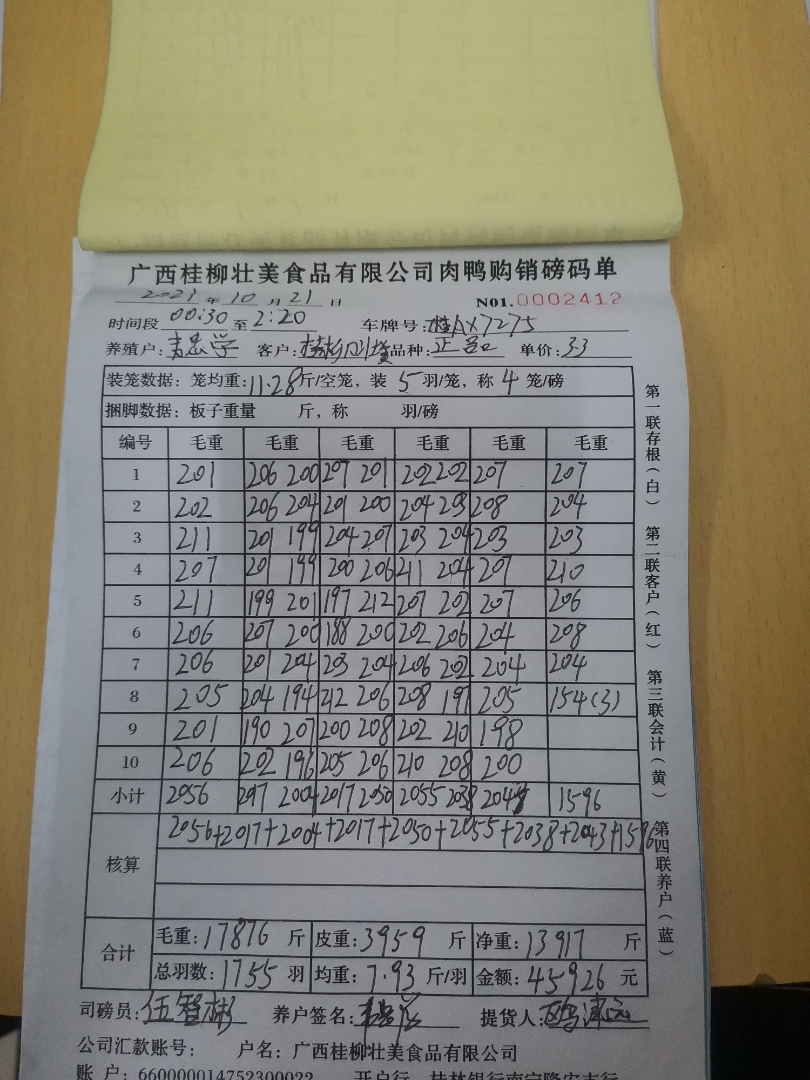 广西桂柳壮美食品有限公司肉鸭购销磅码单
2021年10月21日 N01.0002412
时间段00:30至2:20 车牌号:桂AX7275
养殖户: 客户: 品种: 单价:33
装笼数据:笼均重:11.28斤/空笼,装5羽/笼,称4笼/磅
捆脚数据:板子重量 斤,称 羽/磅
编号 毛重 毛重 毛重 毛重 毛重 毛重
1 201 206 200 207 201 202 202 207 207
2 202 206 204 201 200 204 208 204
3 211 201 199 204 207 203 204 203 203
4 207 201 199 200 206 211 204 207 210
5 211 199 201 197 212 207 202 207 206
6 206 207 200 188 200 202 206 204 208
7 206 201 204 203 204 206 202 204 204
8 205 204 194 212 206 208 197 205 154(3)
9 201 190 207 200 208 202 210 198
10 206 202 196 205 206 210 208 200
小计 2056 2004 2017 2050 2055 2038 1596
核算 2056+2017+2004+2017+2050+2055+2038+2043+1596
合计 毛重:17876斤 皮重:3959斤 净重:13917斤
总羽数:1755羽 均重:7.93斤/羽 金额:45926元
司磅员:伍智彬 养户签名: 提货人:
公司汇款账号: 户名:广西桂柳壮美食品有限公司
账 户:660000014752300022 开户行:桂林银行南宁隆安支行
第一联存根(白)
第二联客户(红)
第三联会计(黄)
第四联养户(蓝)